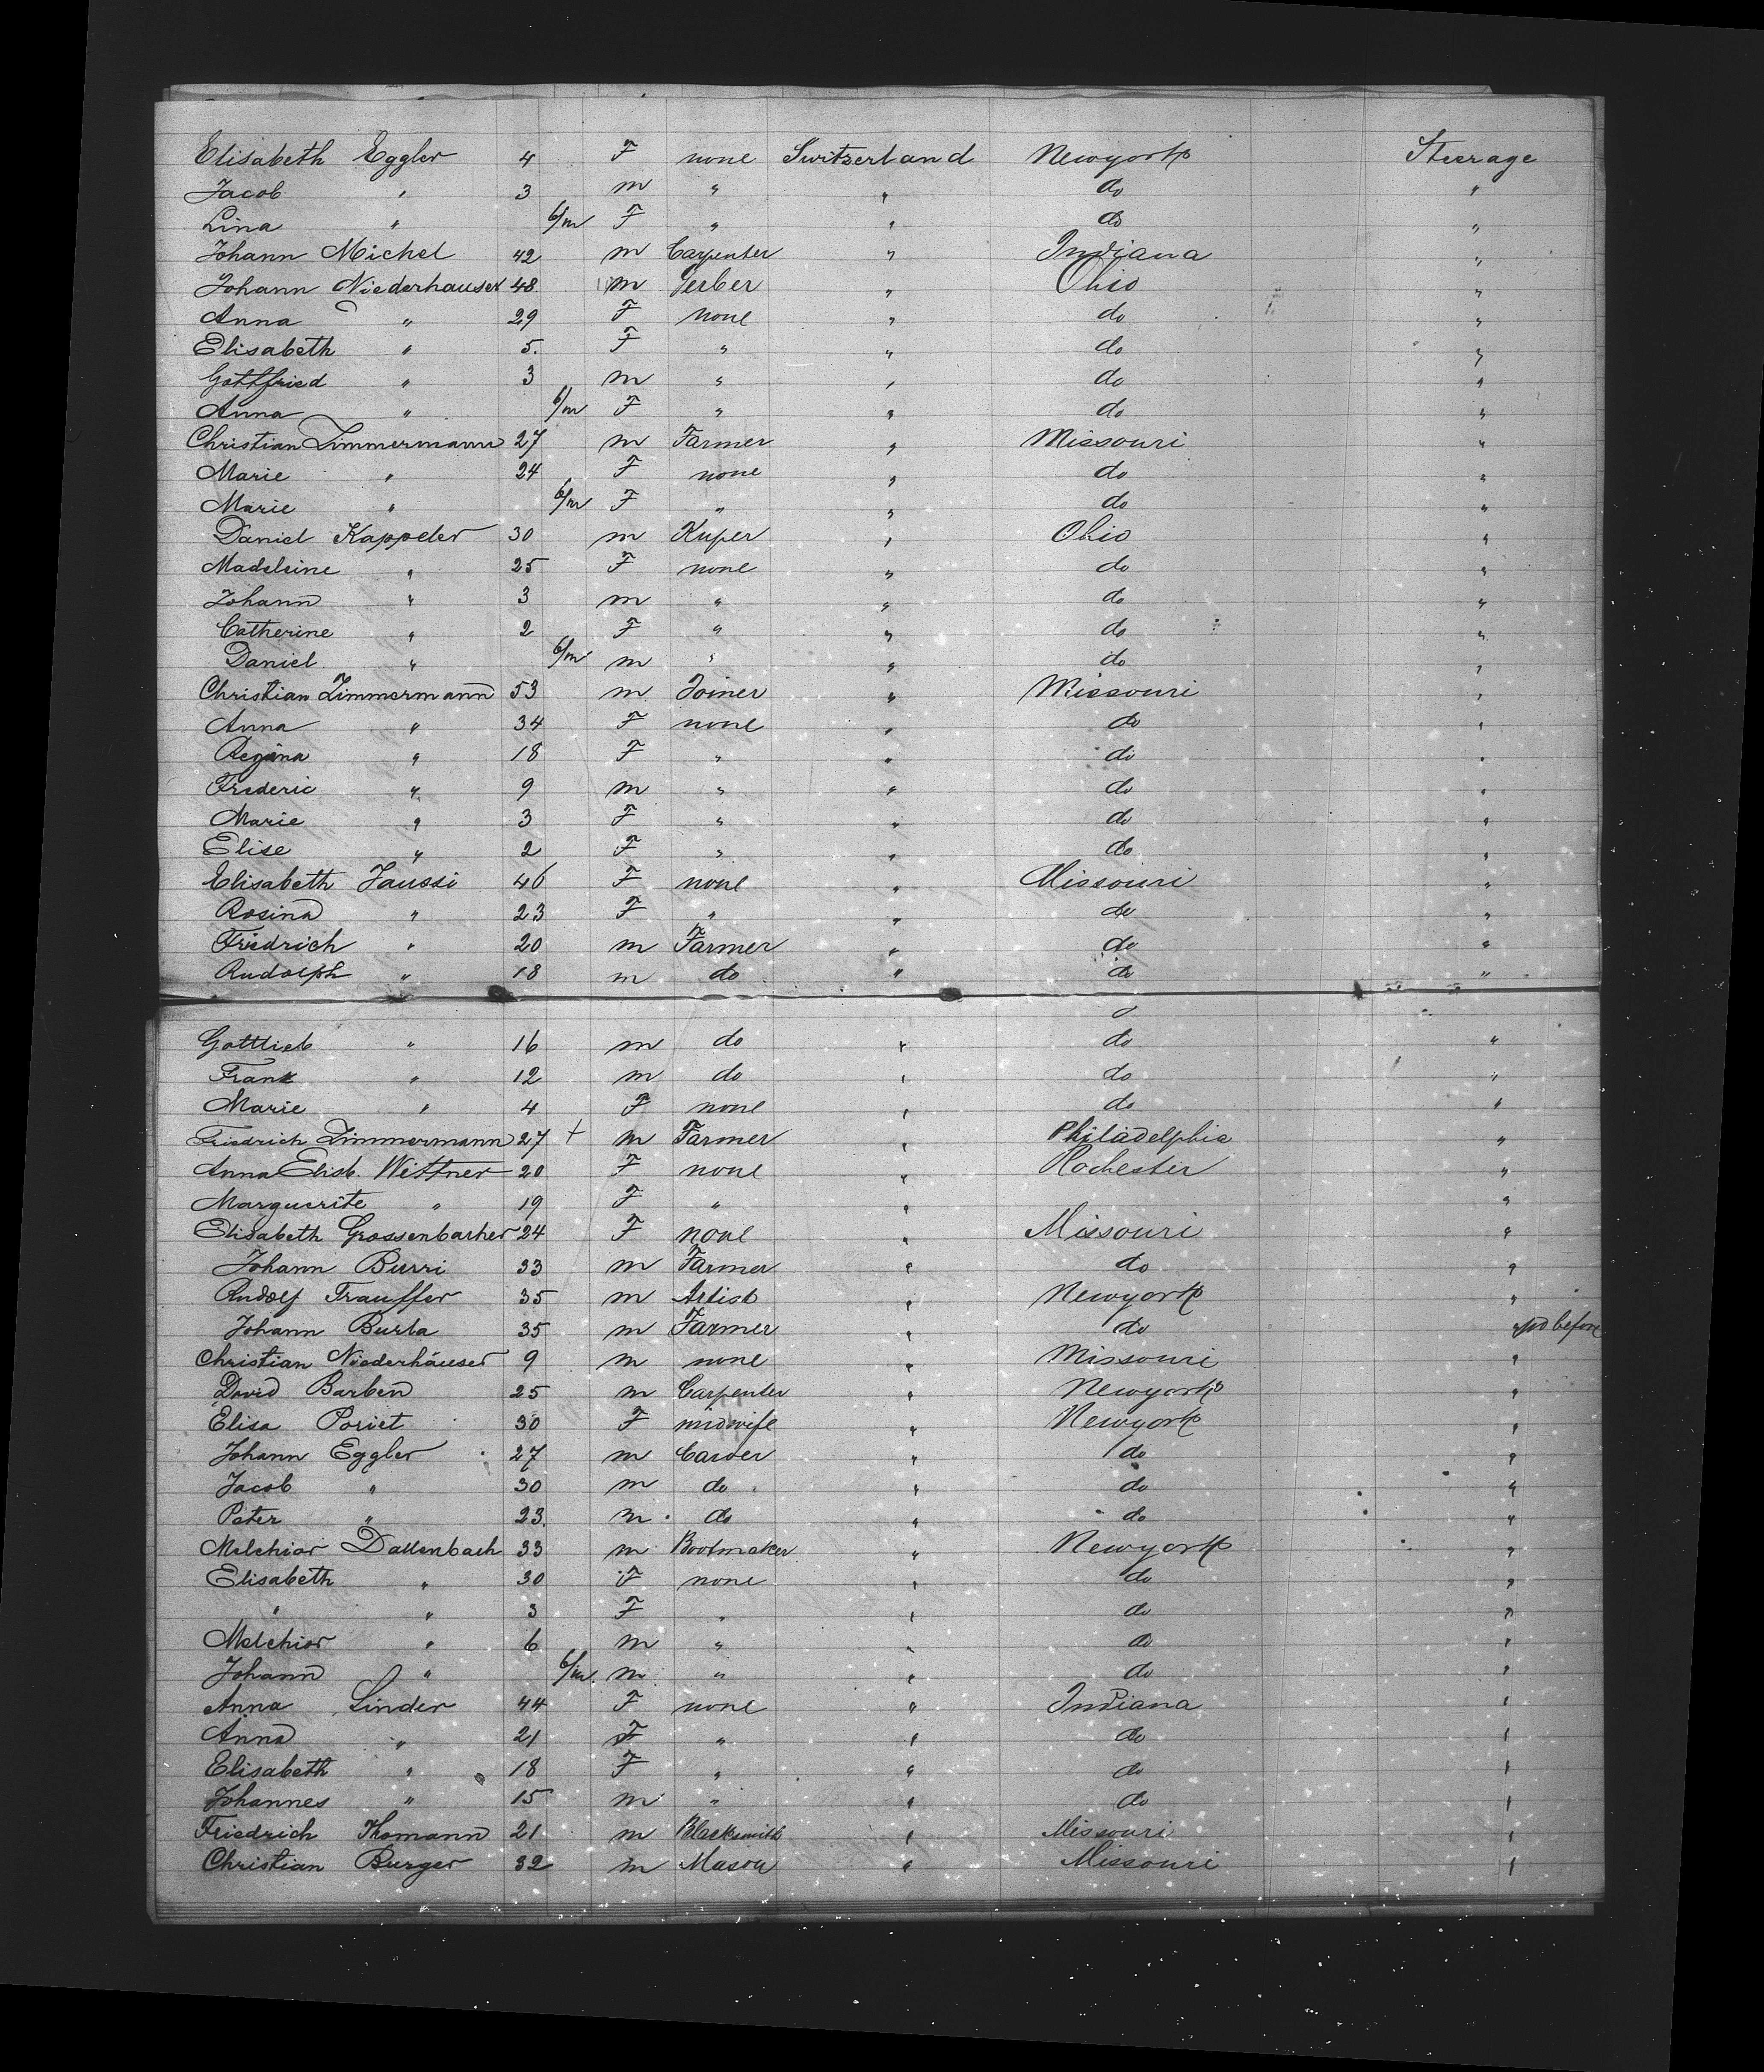 Elisabeth Eggler 4 F none Switzerland Newyork Steerage
Jacob " 3 m " " do "
Lina " 6/m F " " do "
Johann Michel 42 m Carpenter " Indiana "
Johann Niederhauser 48 m Gerber " Ohio "
Anna " 29 F none " do "
Elisabeth " 5. F " " do "
Gottfried " 3 m " " do "
Anna " 6/m F " " do "
Christian Zimmermann 27 m Farmer " Missouri "
Marie " 24 F none " do "
Marie " 6/m F " " do "
Daniel Kappeler 30 m Kuper " Ohio "
Madeleine " 25 F none " do "
Johann " 3 m " " do "
Catherine " 2 F " " do "
Daniel " 6/m m " " do "
Christian Zimmermann 53 m Joiner " Missouri "
Anna " 34 F none " do "
Regina " 18 F " " do "
Frederic " 9 m " " do "
Marie " 3 F " " do "
Elise " 2 F " " do "
Elisabeth Jaussi 46 F none " Missouri "
Rosina " 23 F " " do "
Friedrich " 20 m Farmer " do "
Rudolph " 18 m do " do "
Gottlieb " 16 m do " do "
Frank " 12 m do " do "
Marie " 4 F none " do "
Friedrich Zimmermann 27 + m Farmer " Philadelphia "
Anna Elisb. Wittner 20 F none " Rochester "
Marguerite " 19 F " " "
Elisabeth Grossenbacher 24 F none " Missouri "
Johann Burri 33 m Farmer " do "
Rudolf Trauffer 35 m Artist " Newyork "
Johann Burla 35 m Farmer " do " before
Christian Niederhäuser 9 m none " Missouri "
David Barben 25 m Carpenter " Newyork "
Elisa Poriet 30 F midwife " Newyork "
Johann Eggler 27 m Carver " do "
Jacob " 30 m do " do "
Peter " 23. m do " do "
Melchior Dallenbach 33 m Bootmaker " Newyork "
Elisabeth " 30 F none " do "
" " 3 F " " do "
Melchior " 6 m " " do "
Johann " 6/m. m " " do "
Anna Linder 44 F none " Indiana "
Anna " 21 F " " do "
Elisabeth " 18 F " " do "
Johannes " 15 m " " do "
Friedrich Thomann 21 m Blacksmith " Missouri "
Christian Burger 32 m Mason " Missouri "